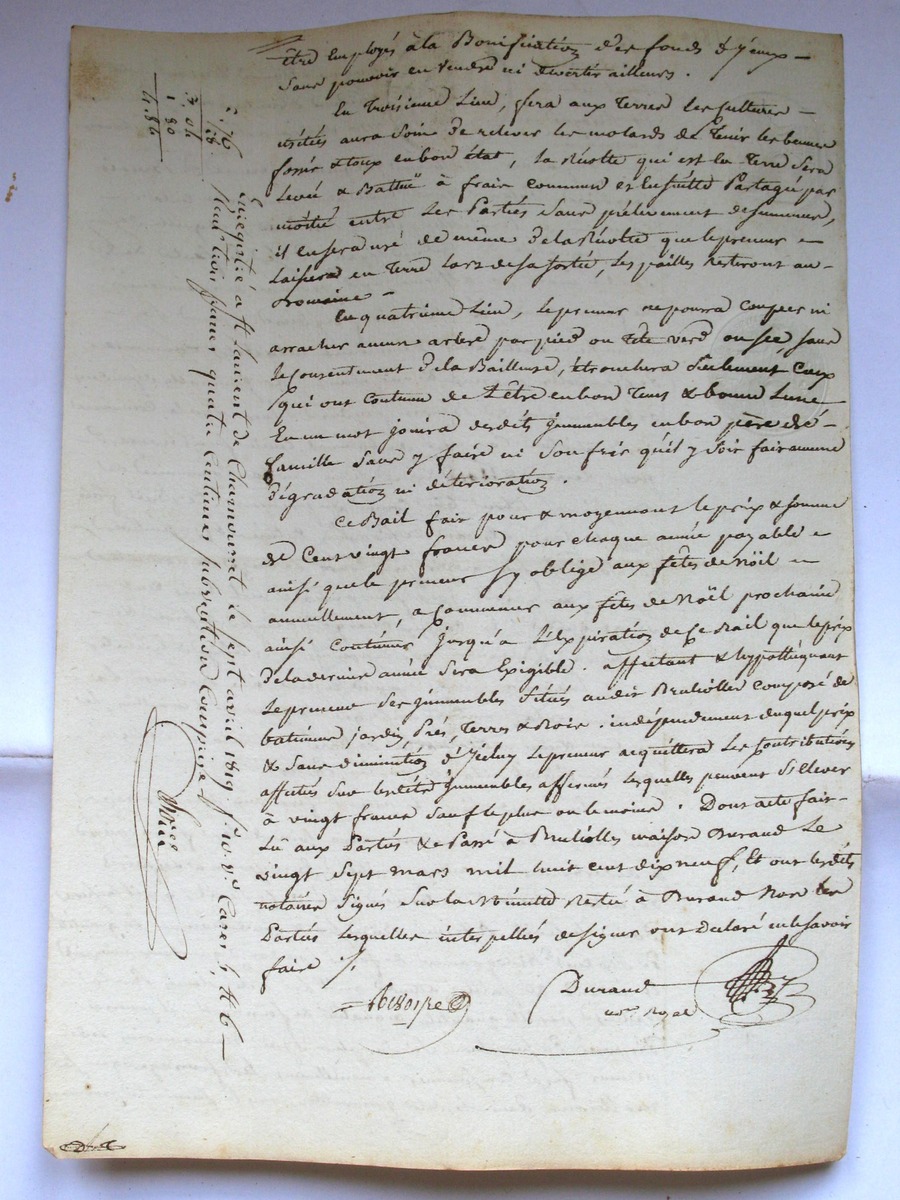 être Employés à la Bonification des fonds & yeux —
sans pouvoir en vendre ni divertir ailleurs.
En Troisieme Lieu, fera aux Terres Les Cultures —
usitées aura Soin De relever Les molards De Tenir les
fossés & en bon état, La Récolte qui est En Terre Sera
Levée & Battue à frais Commun et Ensuitte Partagée par
moitié entre Les Parties Sans prélevement de Semence,
il en sera usé de même De la Récolte que le preneur —
Laissera en Terre Lors de sa sortie, les pailles resteront au —
Domaine —
En quatrieme Lieu, le preneur ne pourra Couper ni
arracher aucun arbre par pied ou Tête verd ou sec, sans
Le Consentement De la Bailleuse, Etronchera Seulement Ceux
qui ont Coutume de L'être en bon Tems & bonne Lune
En un mot jouira desdits Immeubles en bon père de —
famille Sans y faire ni Souffrir qu'il y Soit fait aucune
Dégradation ni détérioration.
Ce Bail fait pour & moyennant le prix & Somme
de Cent vingt francs pour chaque année payable —
ainsi que le preneur s'y oblige aux fêtes de Nöel —
annuellement, a Commencer aux fêtes de Nöel prochaine
ainsi Continuer jusqu'a L'Expiration de Ce Bail que le prix
De la derniere année Sera Exigible. affectant & hypothéquant
Le preneur Ses Immeubles Situés audit Brullioles Composé de
batimens jardin, Prés, Terres & Bois. indépendemment duquel prix
& Sans diminution d'Icelui Le preneur acquittera Les Contributions
affectés Sur lesdits Immeubles affermés Lesquelles peuvent S'Elever
à vingt francs Sauf le plus ou le moins. Dont acte fait —
Lu aux Parties & Passé à Brullioles maison Durand Le
vingt Sept mars mil huit Cent dix neuf, Et ont Lesdits
notaires Signés Sur la Minute Restée à Durand Non les
Parties Lesquelles interpellés de Signer ont Déclaré ne le Savoir
faire ./.
Durand
Nore Royal
Enregistré a St Laurent de Chamousset le sept avril 1819. fo
Reçu trois francs quatre Centimes Subvention Comprise
3. 04
1 80
4. 84